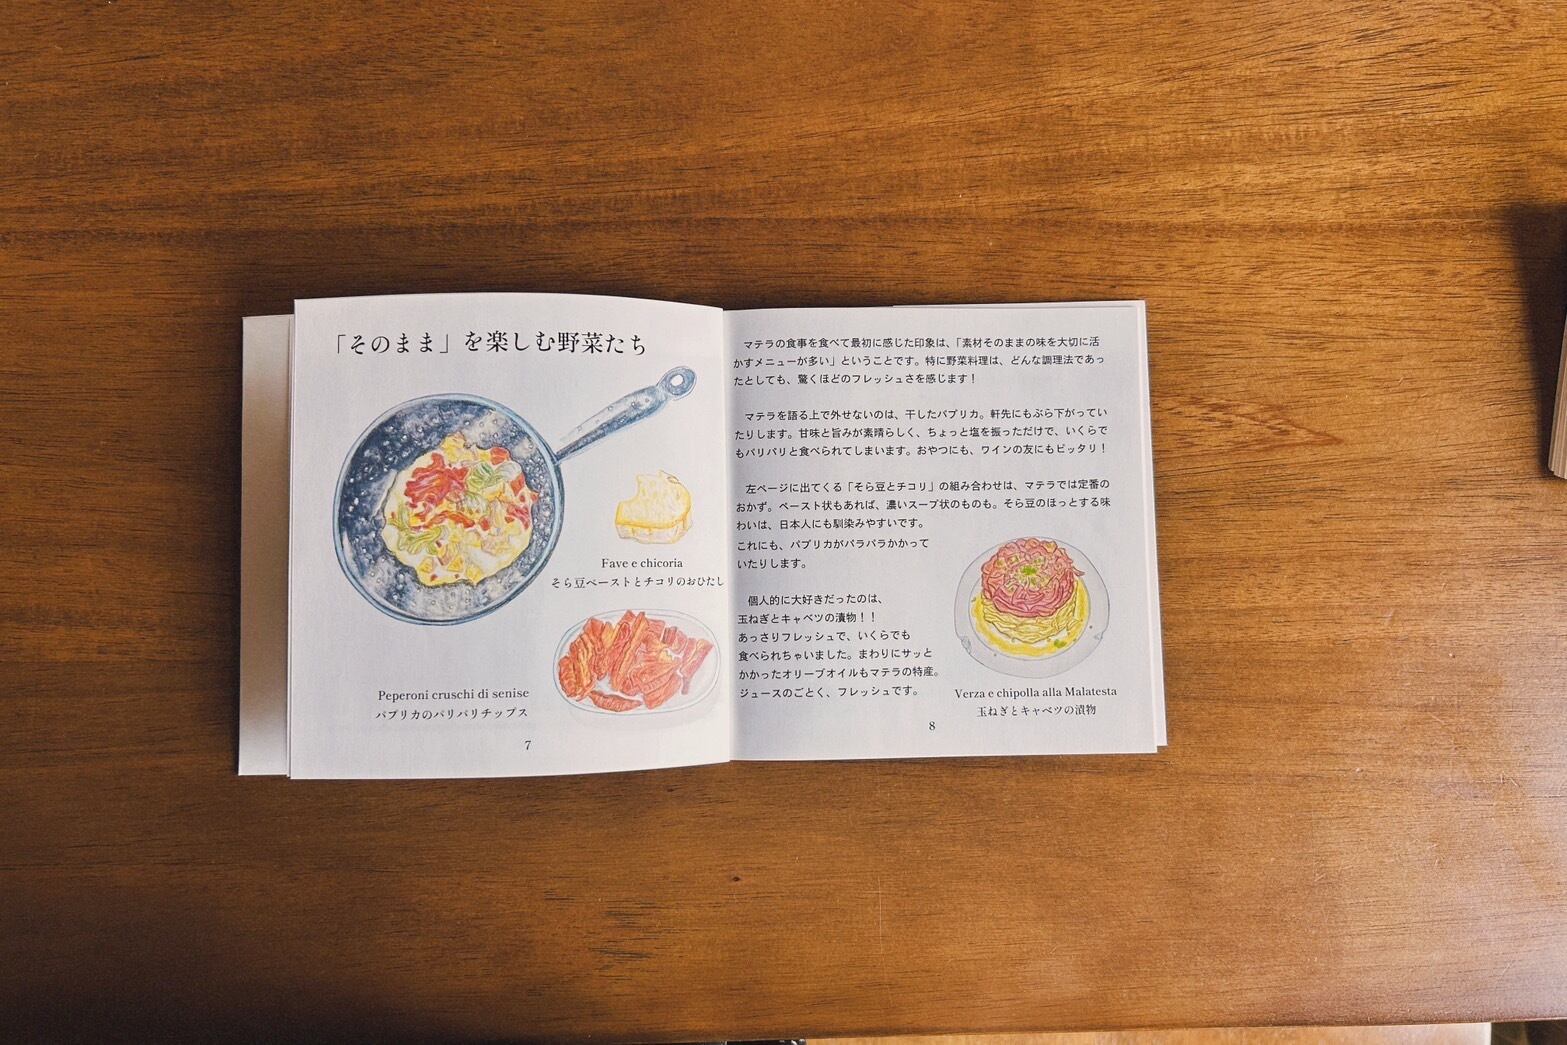 「そのまま」を楽しむ野菜たち
Fave e chicoria
そら豆ペーストとチコリのおひたし
Peperoni cruschi di senise
パプリカのパリパリチップス
7
マテラの食事を食べて最初に感じた印象は、「素材そのままの味を大切に活
かすメニューが多い」ということです。特に野菜料理は、どんな調理法であっ
たとしても、驚くほどのフレッシュさを感じます！
マテラを語る上で外せないのは、干したパプリカ。軒先にもぶら下がってい
たりします。甘味と旨みが素晴らしく、ちょっと塩を振っただけで、いくらで
もパリパリと食べられてしまいます。おやつにも、ワインの友にもピッタリ！
左ページに出てくる「そら豆とチコリ」の組み合わせは、マテラでは定番の
おかず。ペースト状もあれば、濃いスープ状のものも。そら豆のほっとする味
わいは、日本人にも馴染みやすいです。
これにも、パプリカがパラパラかかって
いたりします。
個人的に大好きだったのは、
玉ねぎとキャベツの漬物！！
あっさりフレッシュで、いくらでも
食べられちゃいました。まわりにサッと
かかったオリーブオイルもマテラの特産。
ジュースのごとく、フレッシュです。
Verza e chipolla alla Malatesta
玉ねぎとキャベツの漬物
8